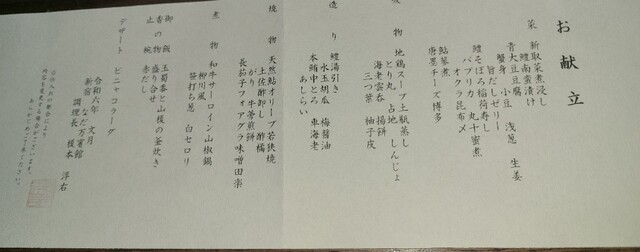 お献立
菜 新取菜浸し
蟹南蛮漬け
青大豆腐 小豆 浅葱 生姜
蟹身 一ゼリー
旨だし
鱧そぼろ稲荷寿し
パプリカ 丸十蜜煮
オクラ昆布〆
鮎菜煮
唐墨チーズ博多
吸物 地鶏スープ土瓶蒸し
とり丸 占地 しんじょ
海老雲呑 揚餅
三つ葉 柚子皮
造り 鱧湯引き
水玉胡瓜 梅醤油
本鮪中とろ 車海老
あしらい
焼物 天然鮎オリーブ若狭焼
土佐酢卸し 酢橘
がり 牛蒡煎餅
長茄子フォアグラ味噌田楽
煮物 和牛サーロイン山椒鍋
柳川風
笹打ち葱 白セロリ
御飯 玉蜀黍と山榎の釜炊き
香の物 盛り合せ
止椀 赤だし
デザート ピニャコラーダ
令和六年 文月
新宿 なだ万賓館
調理長 榎本 洋右